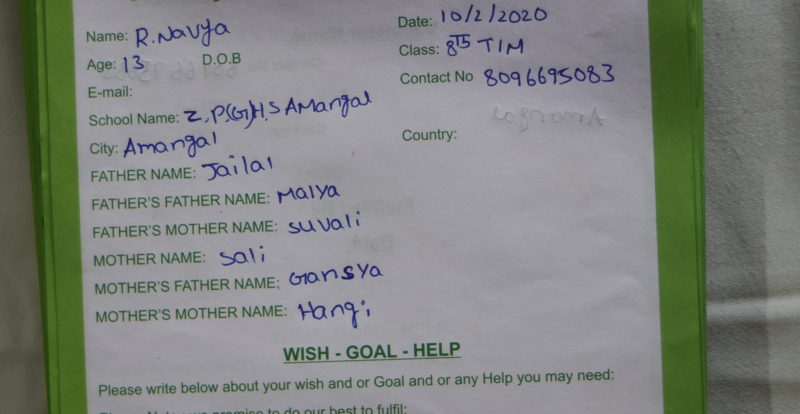 Name: R.Navya
Date: 10/2/2020
Age: 13 D.O.B
Class: 8 TIM
E-mail:
Contact No 8096695083
School Name: Z.P(G)H.S AMangal
City: Amangal
Country:
FATHER NAME: Jailal
FATHER'S FATHER NAME: Malya
FATHER'S MOTHER NAME: suvali
MOTHER NAME: sali
MOTHER'S FATHER NAME: Gansya
MOTHER'S MOTHER NAME: Hangi
WISH - GOAL - HELP
Please write below about your wish and or Goal and or any Help you may need:
to do our best to fulfil: